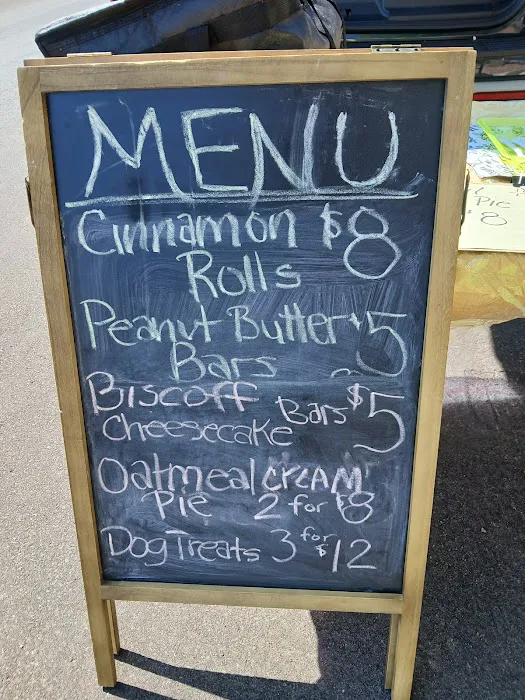 MENU
Cinnamon $8
Rolls
Peanut Butter $5
Bars
Biscoff Bars $5
Cheesecake
Oatmeal CREAM
Pie 2 for $8
Dog Treats 3 for $12
Pie
8